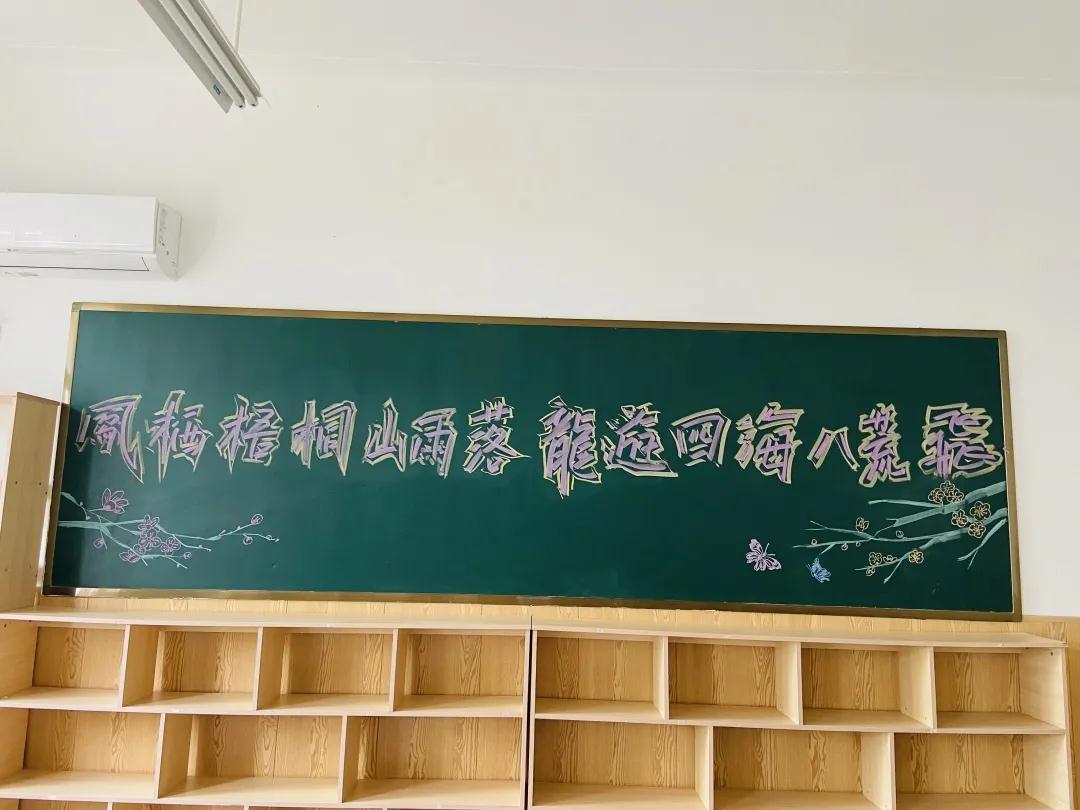 鳳栖梧桐山雨落龍遊四海八荒飛